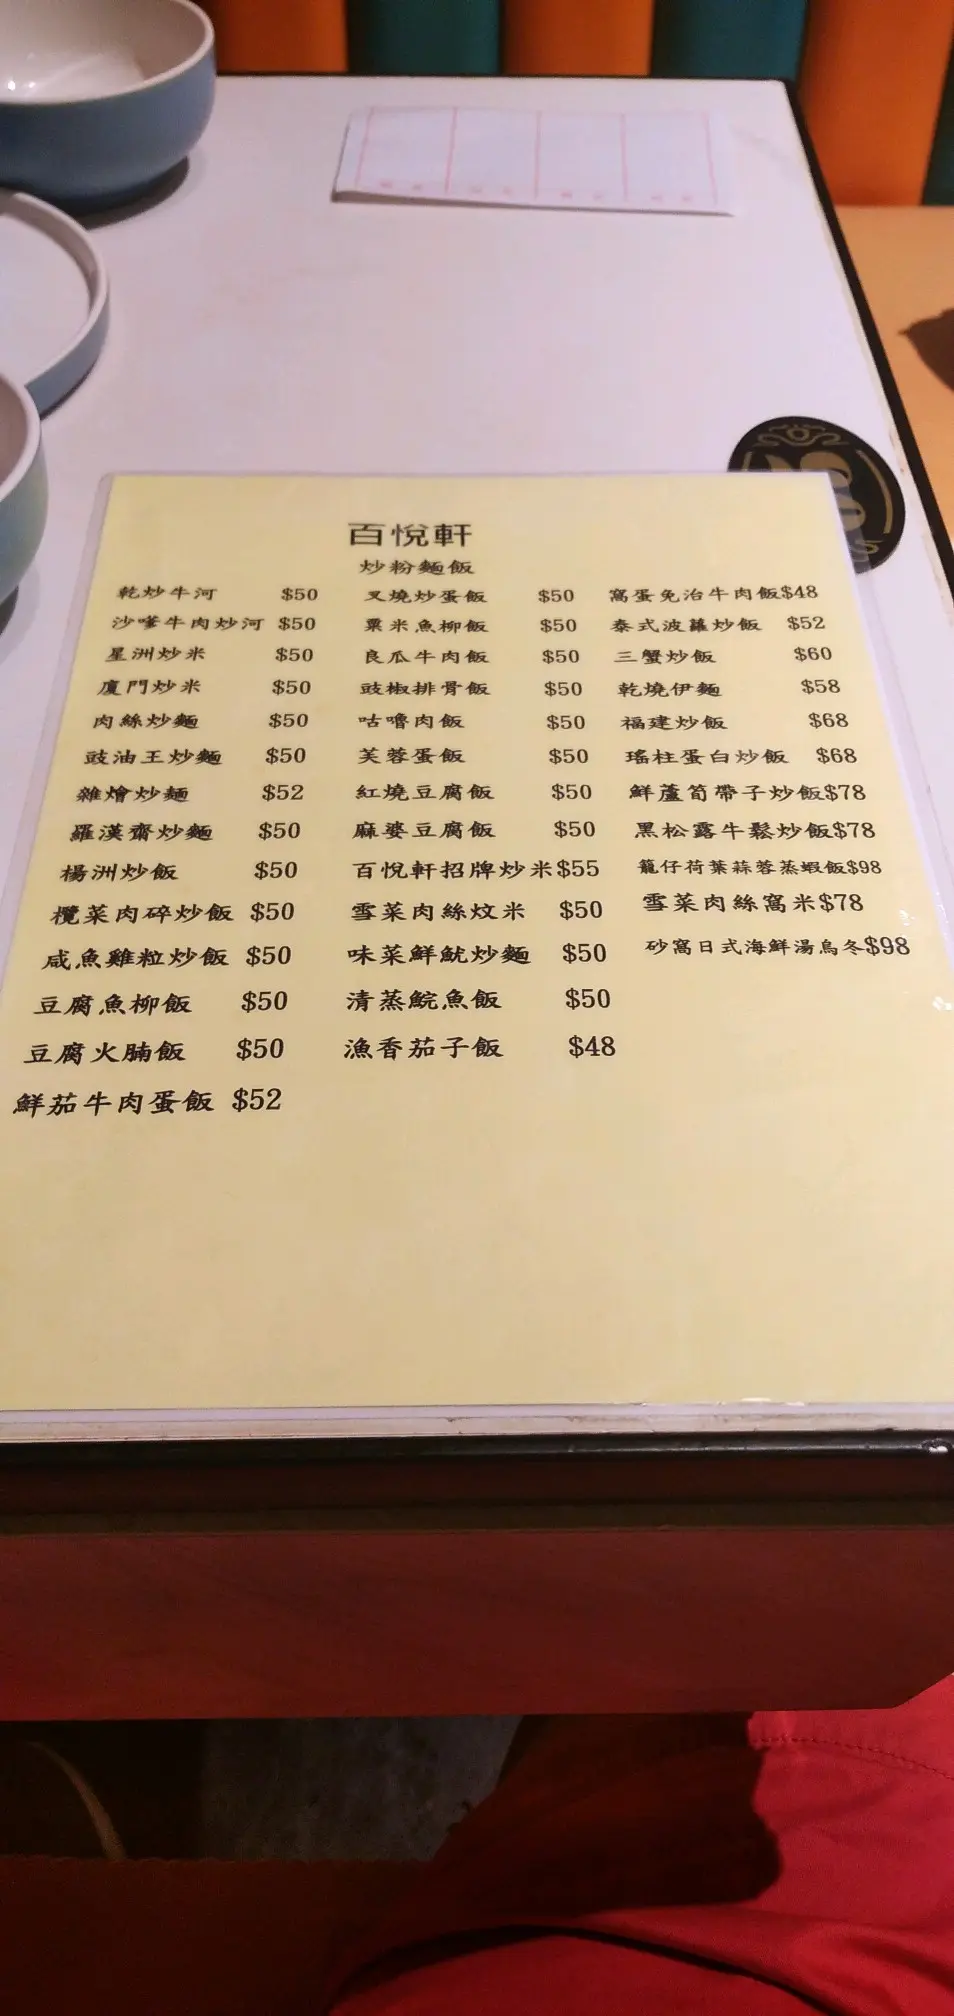 百悅軒
炒粉麵飯
乾炒牛河 $50
沙嗲牛肉炒河 $50
星洲炒米 $50
廈門炒米 $50
肉絲炒麵 $50
豉油王炒麵 $50
雜燴炒麵 $52
羅漢齋炒麵 $50
楊洲炒飯 $50
欖菜肉碎炒飯 $50
咸魚雞粒炒飯 $50
豆腐魚柳飯 $50
豆腐火腩飯 $50
鮮茄牛肉蛋飯 $52
叉燒炒蛋飯 $50
粟米魚柳飯 $50
良瓜牛肉飯 $50
豉椒排骨飯 $50
咕嚕肉飯 $50
芙蓉蛋飯 $50
紅燒豆腐飯 $50
麻婆豆腐飯 $50
百悅軒招牌炒米$55
雪菜肉絲炆米 $50
味菜鮮魷炒麵 $50
清蒸鯇魚飯 $50
漁香茄子飯 $48
窩蛋免治牛肉飯$48
泰式波蘿炒飯 $52
三蟹炒飯 $60
乾燒伊麵 $58
福建炒飯 $68
瑤柱蛋白炒飯 $68
鮮蘆筍帶子炒飯$78
黑松露牛鬆炒飯$78
籠仔荷葉蒜蓉蒸蝦飯$98
雪菜肉絲窩米$78
砂窩日式海鮮湯烏冬$98